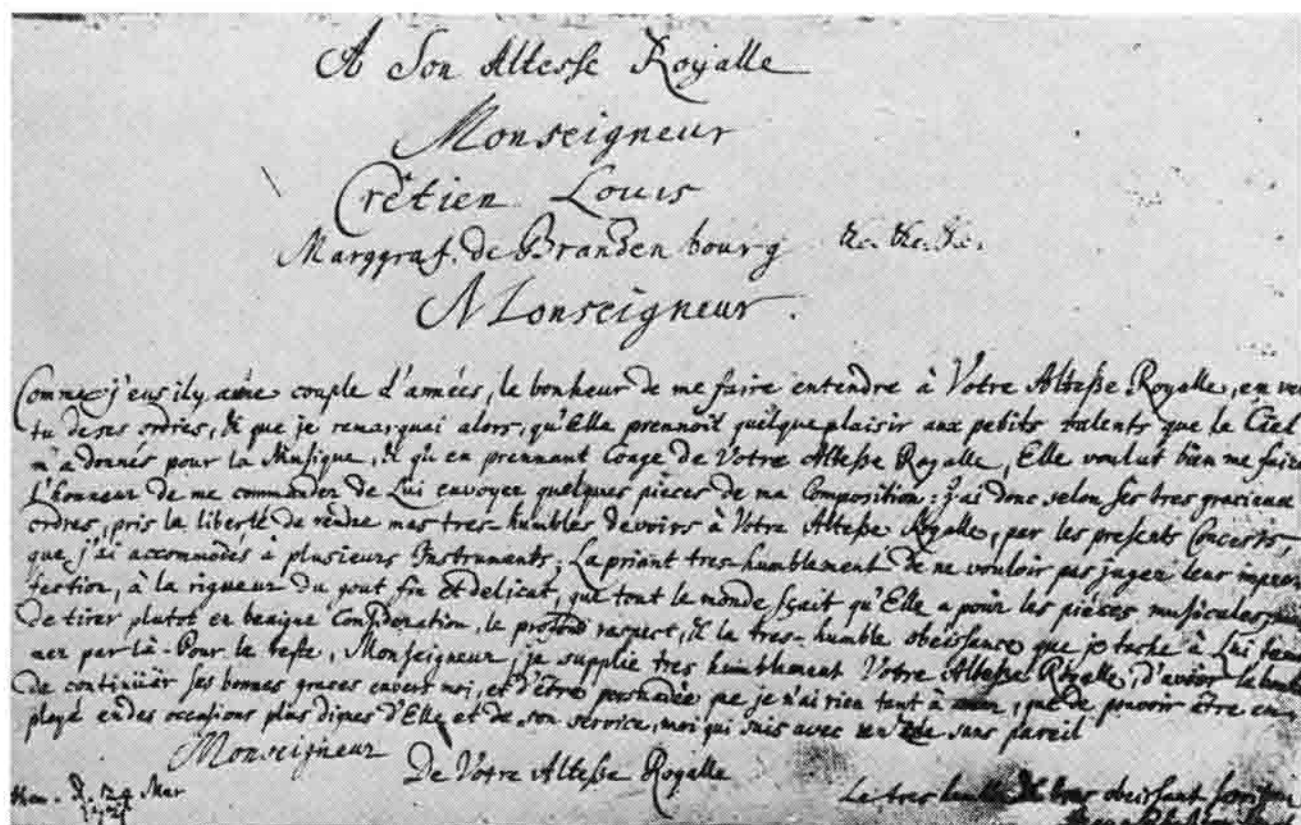 A Son Altesse Royalle
Monseigneur
Crétien Louis
Marggraf. de Brandenbourg &c. &c. &c.
Monseigneur.
Comme j'eus il y a une couple d'années, le bonheur de me faire entendre à Votre Alteße Royalle, en ver
tu de ses ordres, & que je remarquai alors, qu'Elle prennoit quelque plaisir aux petits talents que le Ciel
m'a donnés pour la Musique, & qu'en prennant Conge de Votre Alteße Royalle, Elle voulut bien me faire
l'honneur de me commander de Lui envoyer quelques pieces de ma Composition: j'ai donc selon ses tres gracieux
ordres, pris la liberté de rendre mes tres-humbles devoirs à Votre Alteße Royalle, par les presents Concerts,
que j'ai accommodés à plusieurs Instruments; La priant tres-humblement de ne vouloir pas juger leur imper
fection, à la rigueur du gout fin et delicat, que tout le monde sçait qu'Elle a pour les piéces musicales,
de tirer plutot en benigne Consideration, le profond respect, & la tres-humble obeissance que je tache à Lui
ner par là. Pour le reste, Monseigneur, je supplie tres humblement Votre Alteße Royalle, d'avoir la
de continüer ses bonnes graces envers moi, et d'être persuadée que je n'ai rien tant à, que de pouvoir être em
ployé en des occasions plus dignes d'Elle et de son service, moi qui suis avec un zele sans pareil
Monseigneur
De Votre Alteße Royalle
d. 24 Mar
1721
Le tres humble & tres obeissant